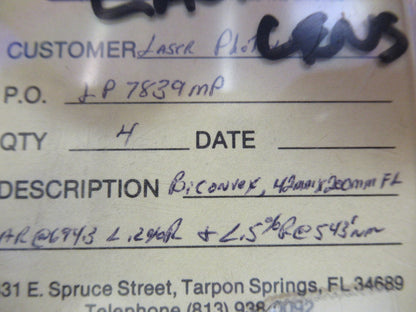 LENS
CUSTOMER Laser Phot
P.O. LP 7839MP
QTY 4 DATE
DESCRIPTION Biconvex, 42mmx200mm FL
AR@694.3 L.2%R + L.5%R@543nm
31 E. Spruce Street, Tarpon Springs, FL 34689
Telephone (813) 938